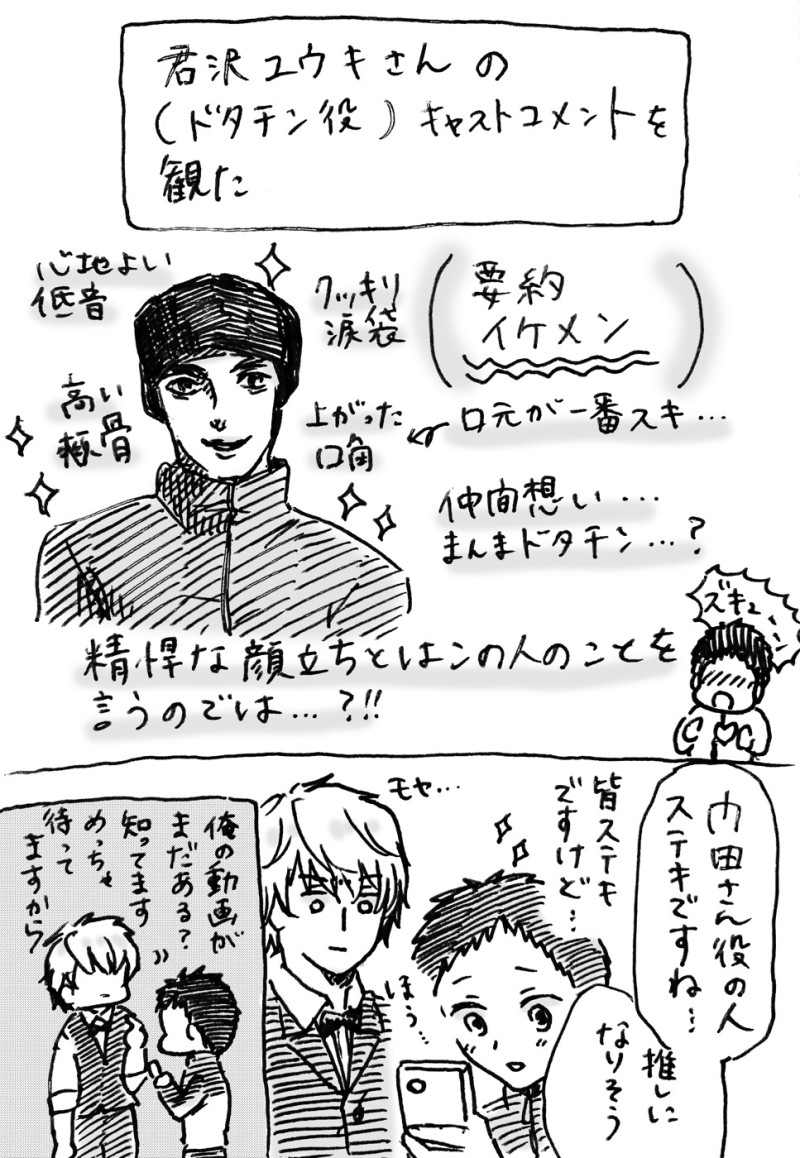 君沢ユウキさんの
(ドタチン役)キャストコメントを
観た
心地よい
低音
クッキリ
涙袋
(要約
イケメン)
高い
頬骨
上がった
口角
口元が一番スキ…
仲間想い…
まんまドタチン…?
ズキューン
精悍な顔立ちとはこの人のことを
言うのでは…?!!
内田さん役の人
ステキですね…
皆ステキ
ですけど…
モヤ…
推しに
なりそう
ほぅ…
俺の動画が
まだある?
知ってます
めっちゃ
待って
ますから